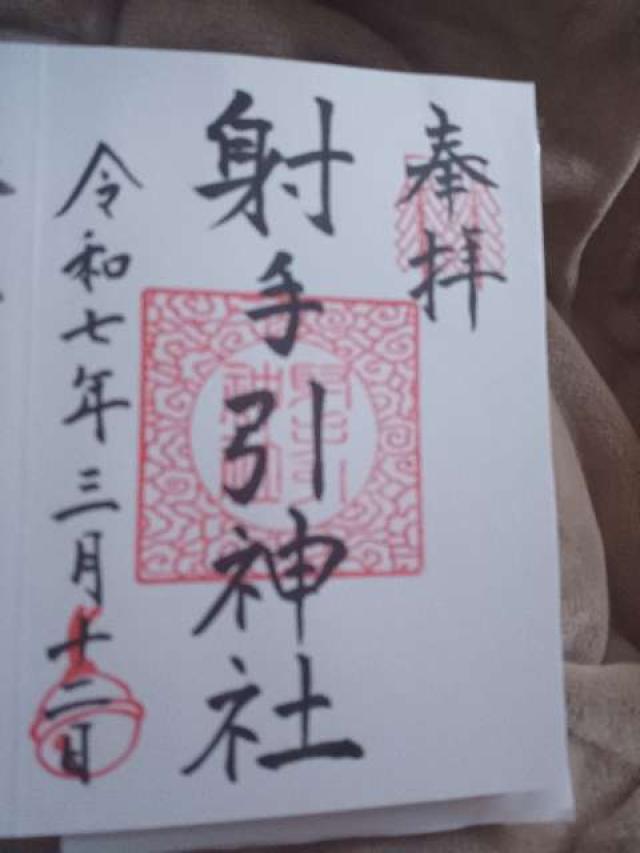 奉拝
射手引神社
令和七年三月十二日